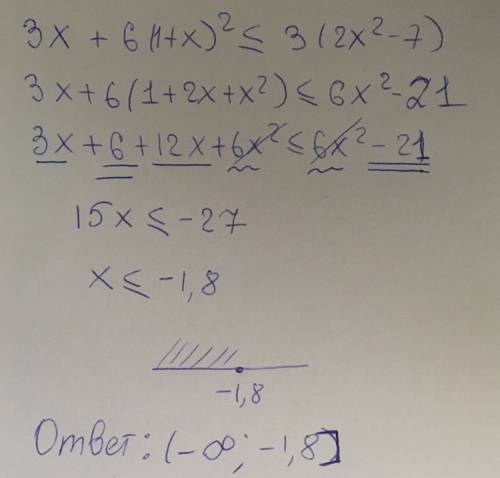 3x + 6(1+x)² ≤ 3(2x²-7)
3x+6(1+2x+x²) ≤ 6x²-21
3x+6+12x+6x² ≤ 6x²-21
15x ≤ -27
x ≤ -1,8
-1,8
Ответ: (-∞; -1,8]